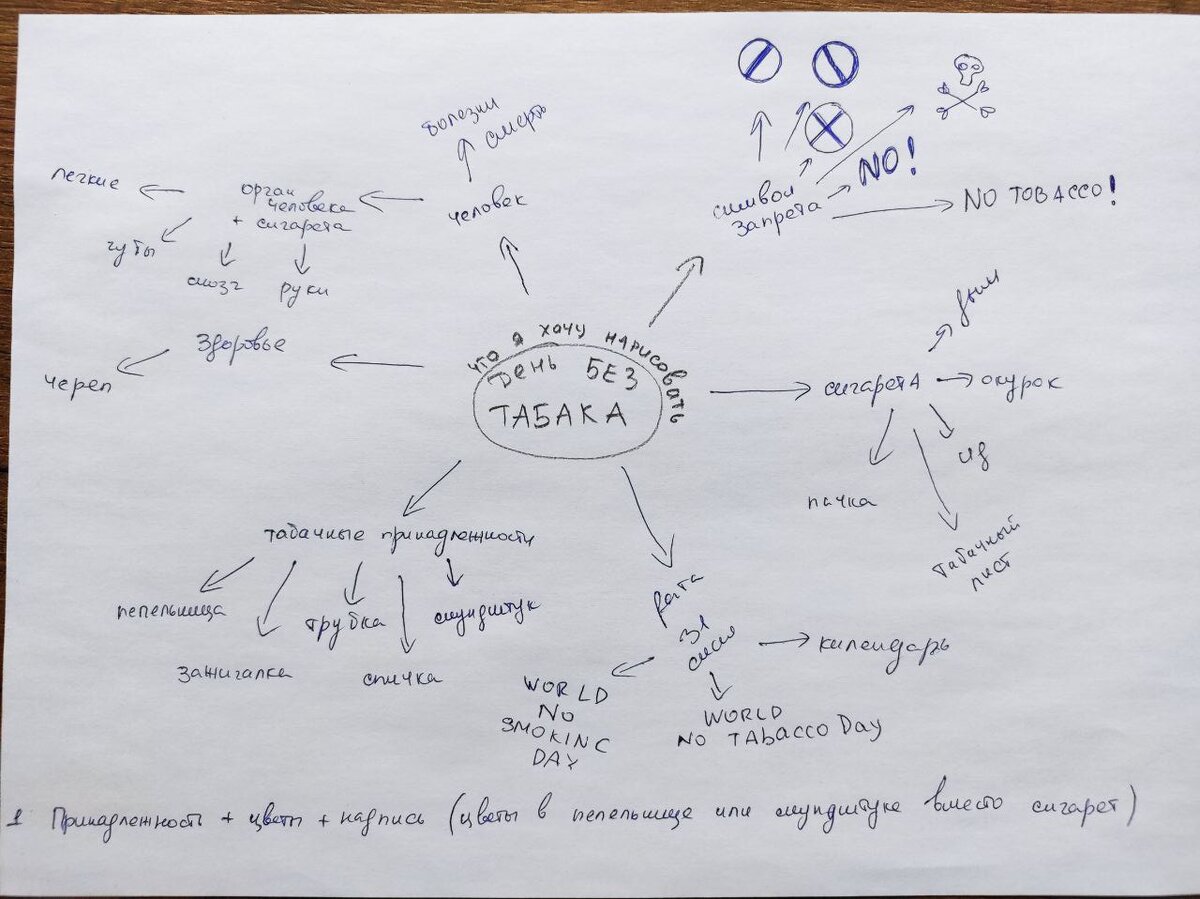 болезни
смерть
человек
орган
человека
+ сигарета
легкие
губы
мозг
руки
Здоровье
череп
символ
запрета
NO!
NO TOBACCO!
что я хочу нарисовать
День БЕЗ
ТАБАКА
сигаретА
дым
окурок
пачка
табачный
лист
табачные принадлежности
пепельница
зажигалка
трубка
спичка
мундштук
дата
31
мая
календарь
WORLD
NO
SMOKING
DAY
WORLD
NO TAbACCO Day
1 Принадлежность + цветы + надпись (цветы в пепельнице или мундштуке вместо сигарет)